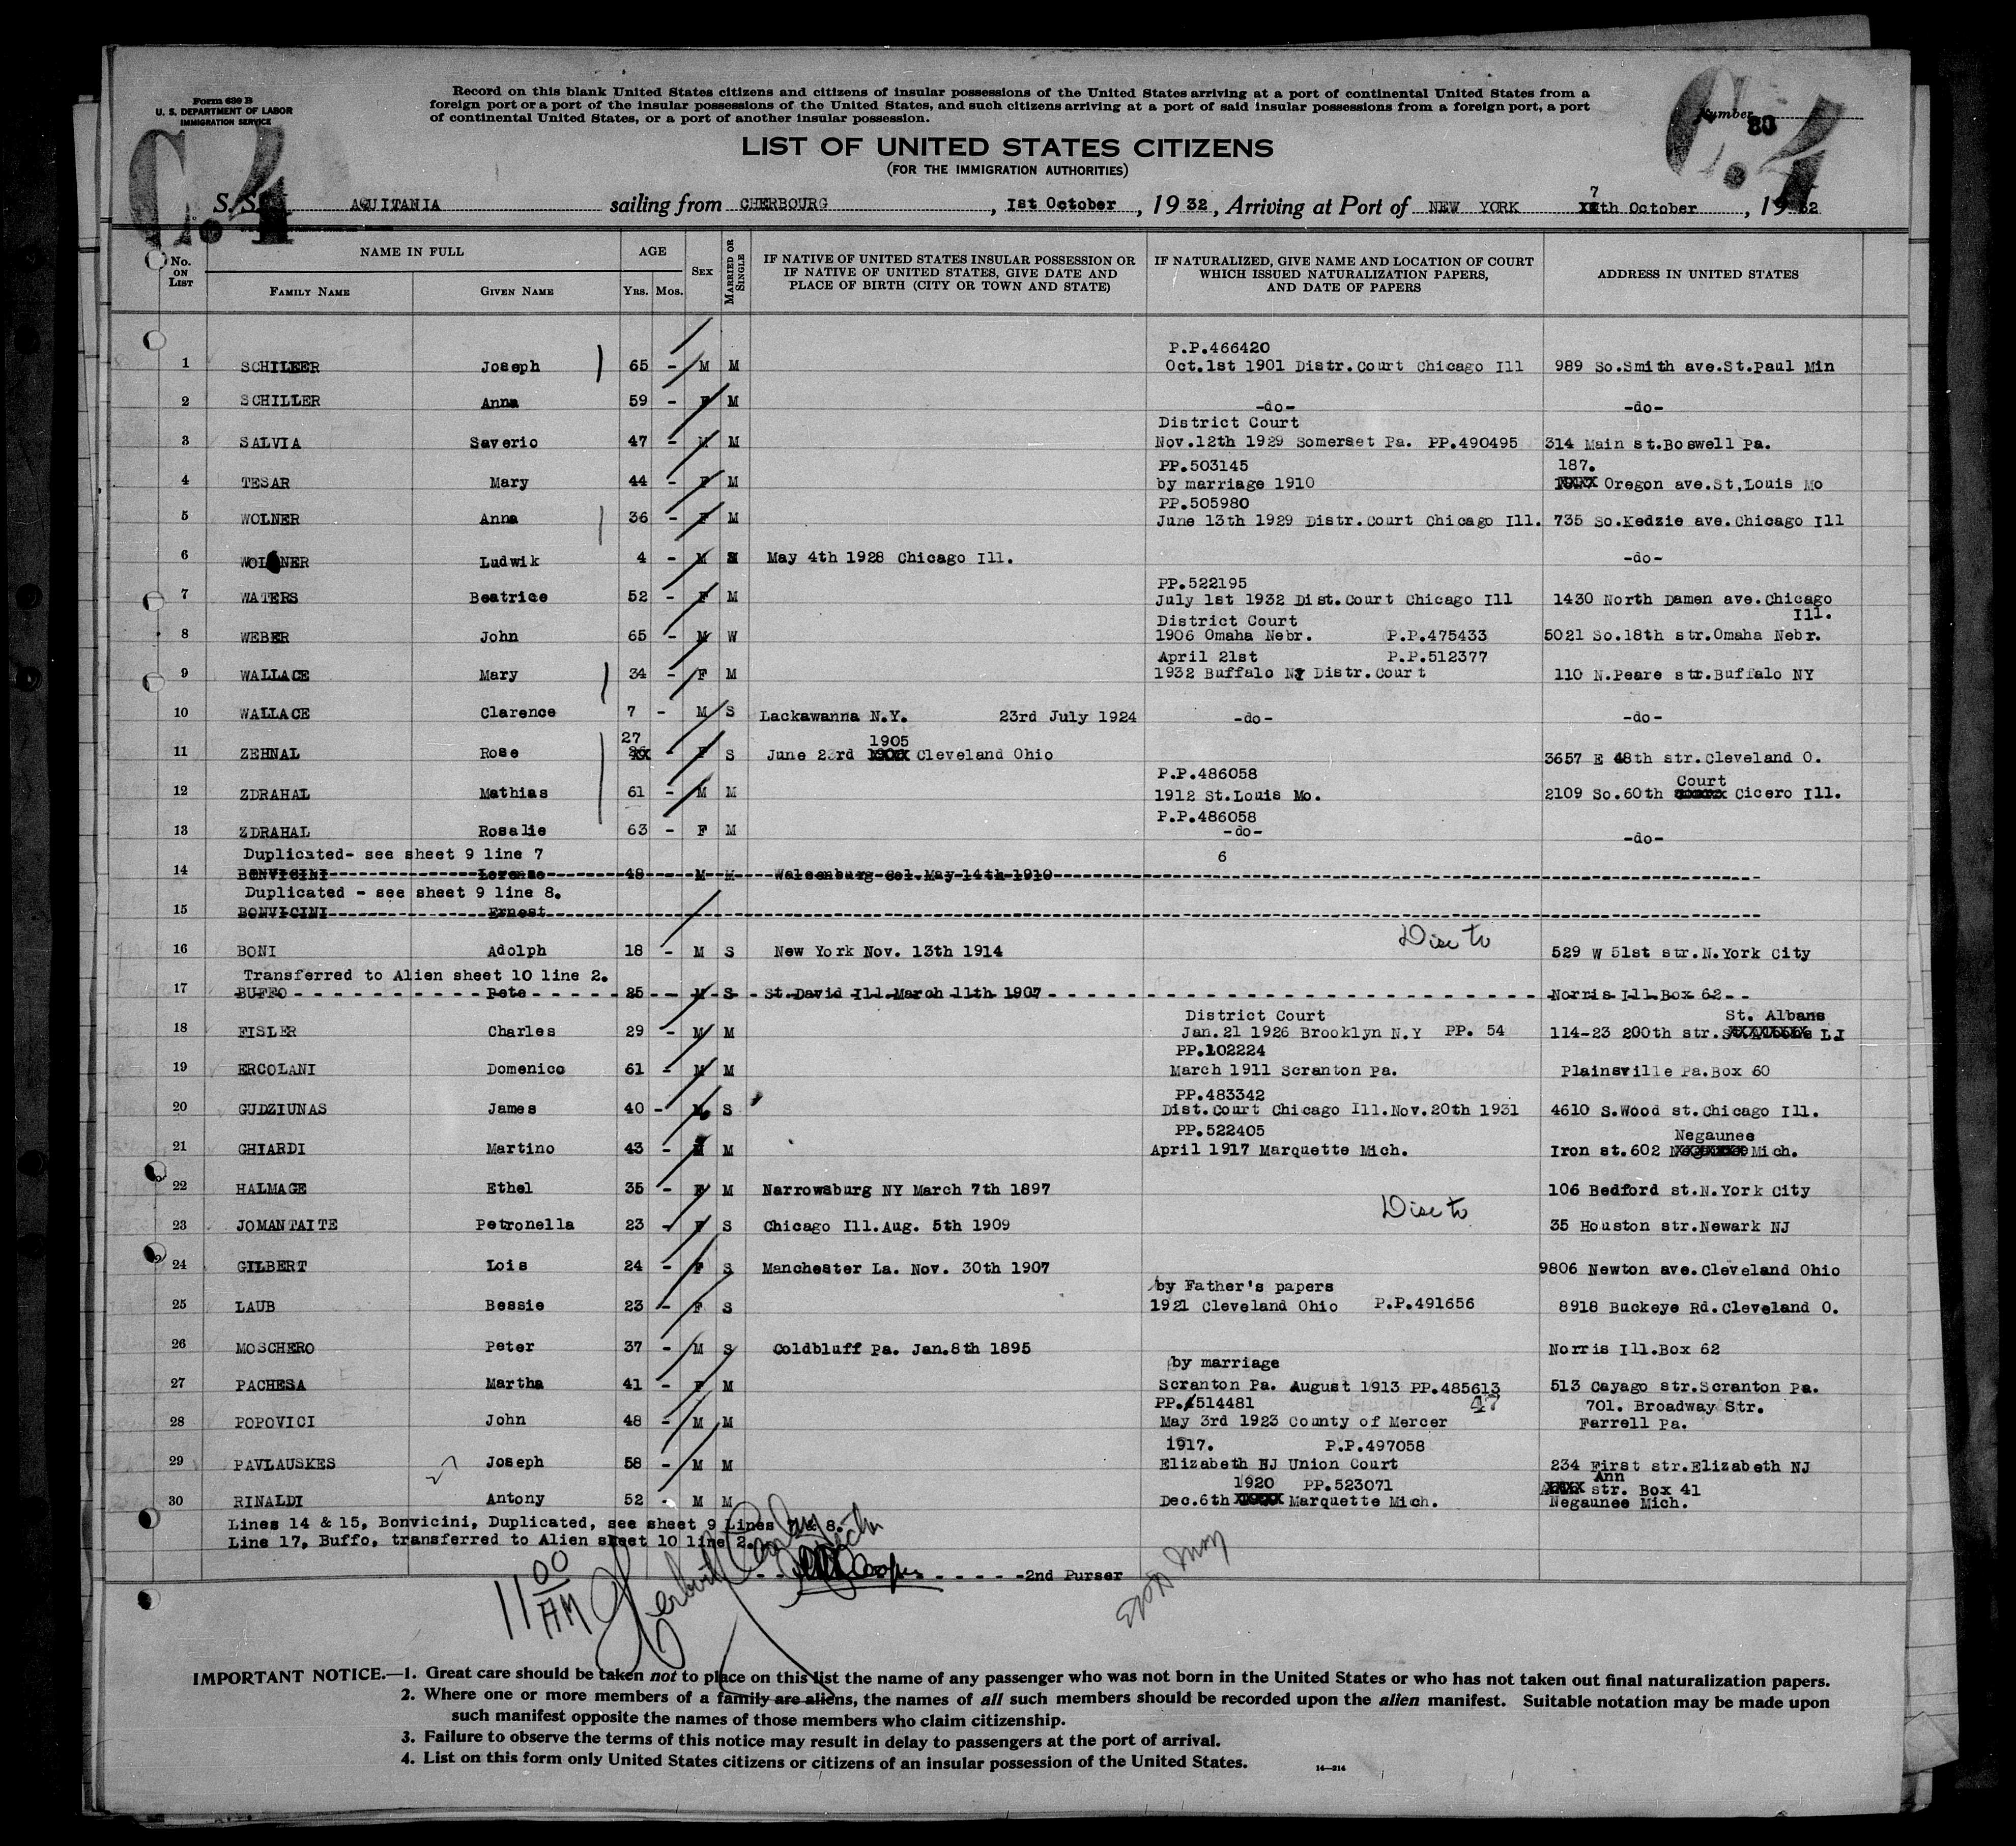 Form 630 B
U. S. DEPARTMENT OF LABOR
IMMIGRATION SERVICE
Record on this blank United States citizens and citizens of insular possessions of the United States arriving at a port of continental United States from a
foreign port or a port of the insular possessions of the United States, and such citizens arriving at a port of said insular possessions from a foreign port, a port
of continental United States, or a port of another insular possession.
Number 80
C.4 C.4
LIST OF UNITED STATES CITIZENS
(FOR THE IMMIGRATION AUTHORITIES)
S. S. AQUITANIA sailing from CHERBOURG, 1st October, 1932, Arriving at Port of NEW YORK 7th October, 1932
No. ON LIST
NAME IN FULL
FAMILY NAME GIVEN NAME
AGE
YRS. MOS.
SEX
MARRIED OR SINGLE
IF NATIVE OF UNITED STATES INSULAR POSSESSION OR
IF NATIVE OF UNITED STATES, GIVE DATE AND
PLACE OF BIRTH (CITY OR TOWN AND STATE)
IF NATURALIZED, GIVE NAME AND LOCATION OF COURT
WHICH ISSUED NATURALIZATION PAPERS,
AND DATE OF PAPERS
ADDRESS IN UNITED STATES
P.P.466420
1 SCHILEER Joseph 65 - M M Oct.1st 1901 Distr.Court Chicago Ill 989 So.Smith ave.St.Paul Min
2 SCHILLER Anna 59 - F M -do- -do-
District Court
3 SALVIA Saverio 47 - M M Nov.12th 1929 Somerset Pa. PP.490495 314 Main st.Boswell Pa.
PP.503145 187.
4 TESAR Mary 44 - F M by marriage 1910 Oregon ave.St,Louis Mo
PP.505980
5 WOLNER Anna 36 - F M June 13th 1929 Distr.Court Chicago Ill. 735 So.Kedzie ave.Chicago Ill
6 WOLNER Ludwik 4 - M May 4th 1928 Chicago Ill. -do-
PP.522195
7 WATERS Beatrice 52 - F M July 1st 1932 Dist.Court Chicago Ill 1430 North Damen ave.Chicago
Ill.
District Court
8 WEBER John 65 - M W 1906 Omaha Nebr. P.P.475433 5021 So.18th str.Omaha Nebr.
April 21st P.P.512377
9 WALLACE Mary 34 - F M 1932 Buffalo NY Distr.Court 110 N.Peare str.Buffalo NY
10 WALLACE Clarence 7 - M S Lackawanna N.Y. 23rd July 1924 -do- -do-
27 1905
11 ZEHNAL Rose 26 - F S June 23rd Cleveland Ohio 3657 E 48th str.Cleveland O.
P.P.486058 Court
12 ZDRAHAL Mathias 61 - M M 1912 St.Louis Mo. 2109 So.60th Cicero Ill.
P.P.486058
13 ZDRAHAL Rosalie 63 - F M -do- -do-
Duplicated- see sheet 9 line 7 6
14 BONVICINI Lorenzo 48 M M Walsenburg Col.May 14th 1910
Duplicated - see sheet 9 line 8.
15 BONVICINI Ernest
16 BONI Adolph 18 - M S New York Nov. 13th 1914 529 W 51st str.N.York City
Transferred to Alien sheet 10 line 2.
17 BUFFO Pete 25 - M S St.David Ill March 11th 1907 Norris Ill.Box 62
District Court St. Albans
18 FISLER Charles 29 - M M Jan.21 1926 Brooklyn N.Y PP. 54 114-23 200th str. L.I
PP.102224
19 ERCOLANI Domenico 61 - M M March 1911 Scranton Pa. Plainsville Pa.Box 60
PP.483342
20 GUDZIUNAS James 40 - M S Dist.Court Chicago Ill.Nov.20th 1931 4610 S.Wood st.Chicago Ill.
PP.522405 Negaunee
21 GHIARDI Martino 43 - M M April 1917 Marquette Mich. Iron st.602 Mich.
22 HALMAGE Ethel 35 - F M Narrowsburg NY March 7th 1897 106 Bedford st.N.York City
23 JOMANTAITE Petronella 23 - F S Chicago Ill.Aug. 5th 1909 35 Houston str.Newark NJ
24 GILBERT Lois 24 - F S Manchester La. Nov. 30th 1907 9806 Newton ave.Cleveland Ohio
by Father's papers
25 LAUB Bessie 23 - F S 1921 Cleveland Ohio P.P.491656 8918 Buckeye Rd.Cleveland O.
26 MOSCHERO Peter 37 - M S Coldbluff Pa. Jan.8th 1895 Norris Ill.Box 62
by marriage
27 PACHESA Martha 41 - F M Scranton Pa. August 1913 PP.485613 513 Cayago str.Scranton Pa.
PP.514481 47 701. Broadway Str.
28 POPOVICI John 48 - M M May 3rd 1923 County of Mercer Farrell Pa.
1917. P.P.497058
29 PAVLAUSKES Joseph 58 - M M Elizabeth NJ Union Court 234 First str.Elizabeth NJ
1920 PP.523071 Ann
str. Box 41
30 RINALDI Antony 52 - M M Dec.6th Marquette Mich. Negaunee Mich.
Lines 14 & 15, Bonvicini, Duplicated, see sheet 9 Lines 7 & 8.
Line 17, Buffo, transferred to Alien sheet 10 line 2.
Cooper 2nd Purser
11 00 AM
IMPORTANT NOTICE.—1. Great care should be taken not to place on this list the name of any passenger who was not born in the United States or who has not taken out final naturalization papers.
2. Where one or more members of a family are aliens, the names of all such members should be recorded upon the alien manifest. Suitable notation may be made upon
such manifest opposite the names of those members who claim citizenship.
3. Failure to observe the terms of this notice may result in delay to passengers at the port of arrival.
4. List on this form only United States citizens or citizens of an insular possession of the United States.
14—214